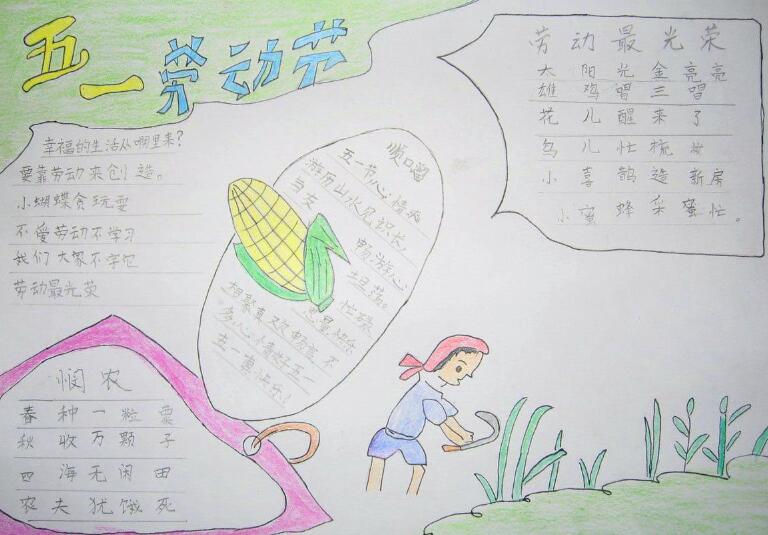 五一劳动节
幸福的生活从哪里来?
要靠劳动来创造。
小蝴蝶贪玩耍
不爱劳动不学习
我们大家不学它
劳动最光荣
顺口溜
五一节心情爽
游历山水见识长
当友
畅游心
坦荡。
忙碌
想聚真欢畅
多心情好五一
五一重快乐!
劳动最光荣
太阳光金亮亮
雄鸡唱三唱
花儿醒来了
鸟儿忙梳妆
小喜鹊造新房
小蜜蜂采蜜忙。
悯农
春种一粒粟
秋收万颗子
四海无闲田
农夫犹饿死